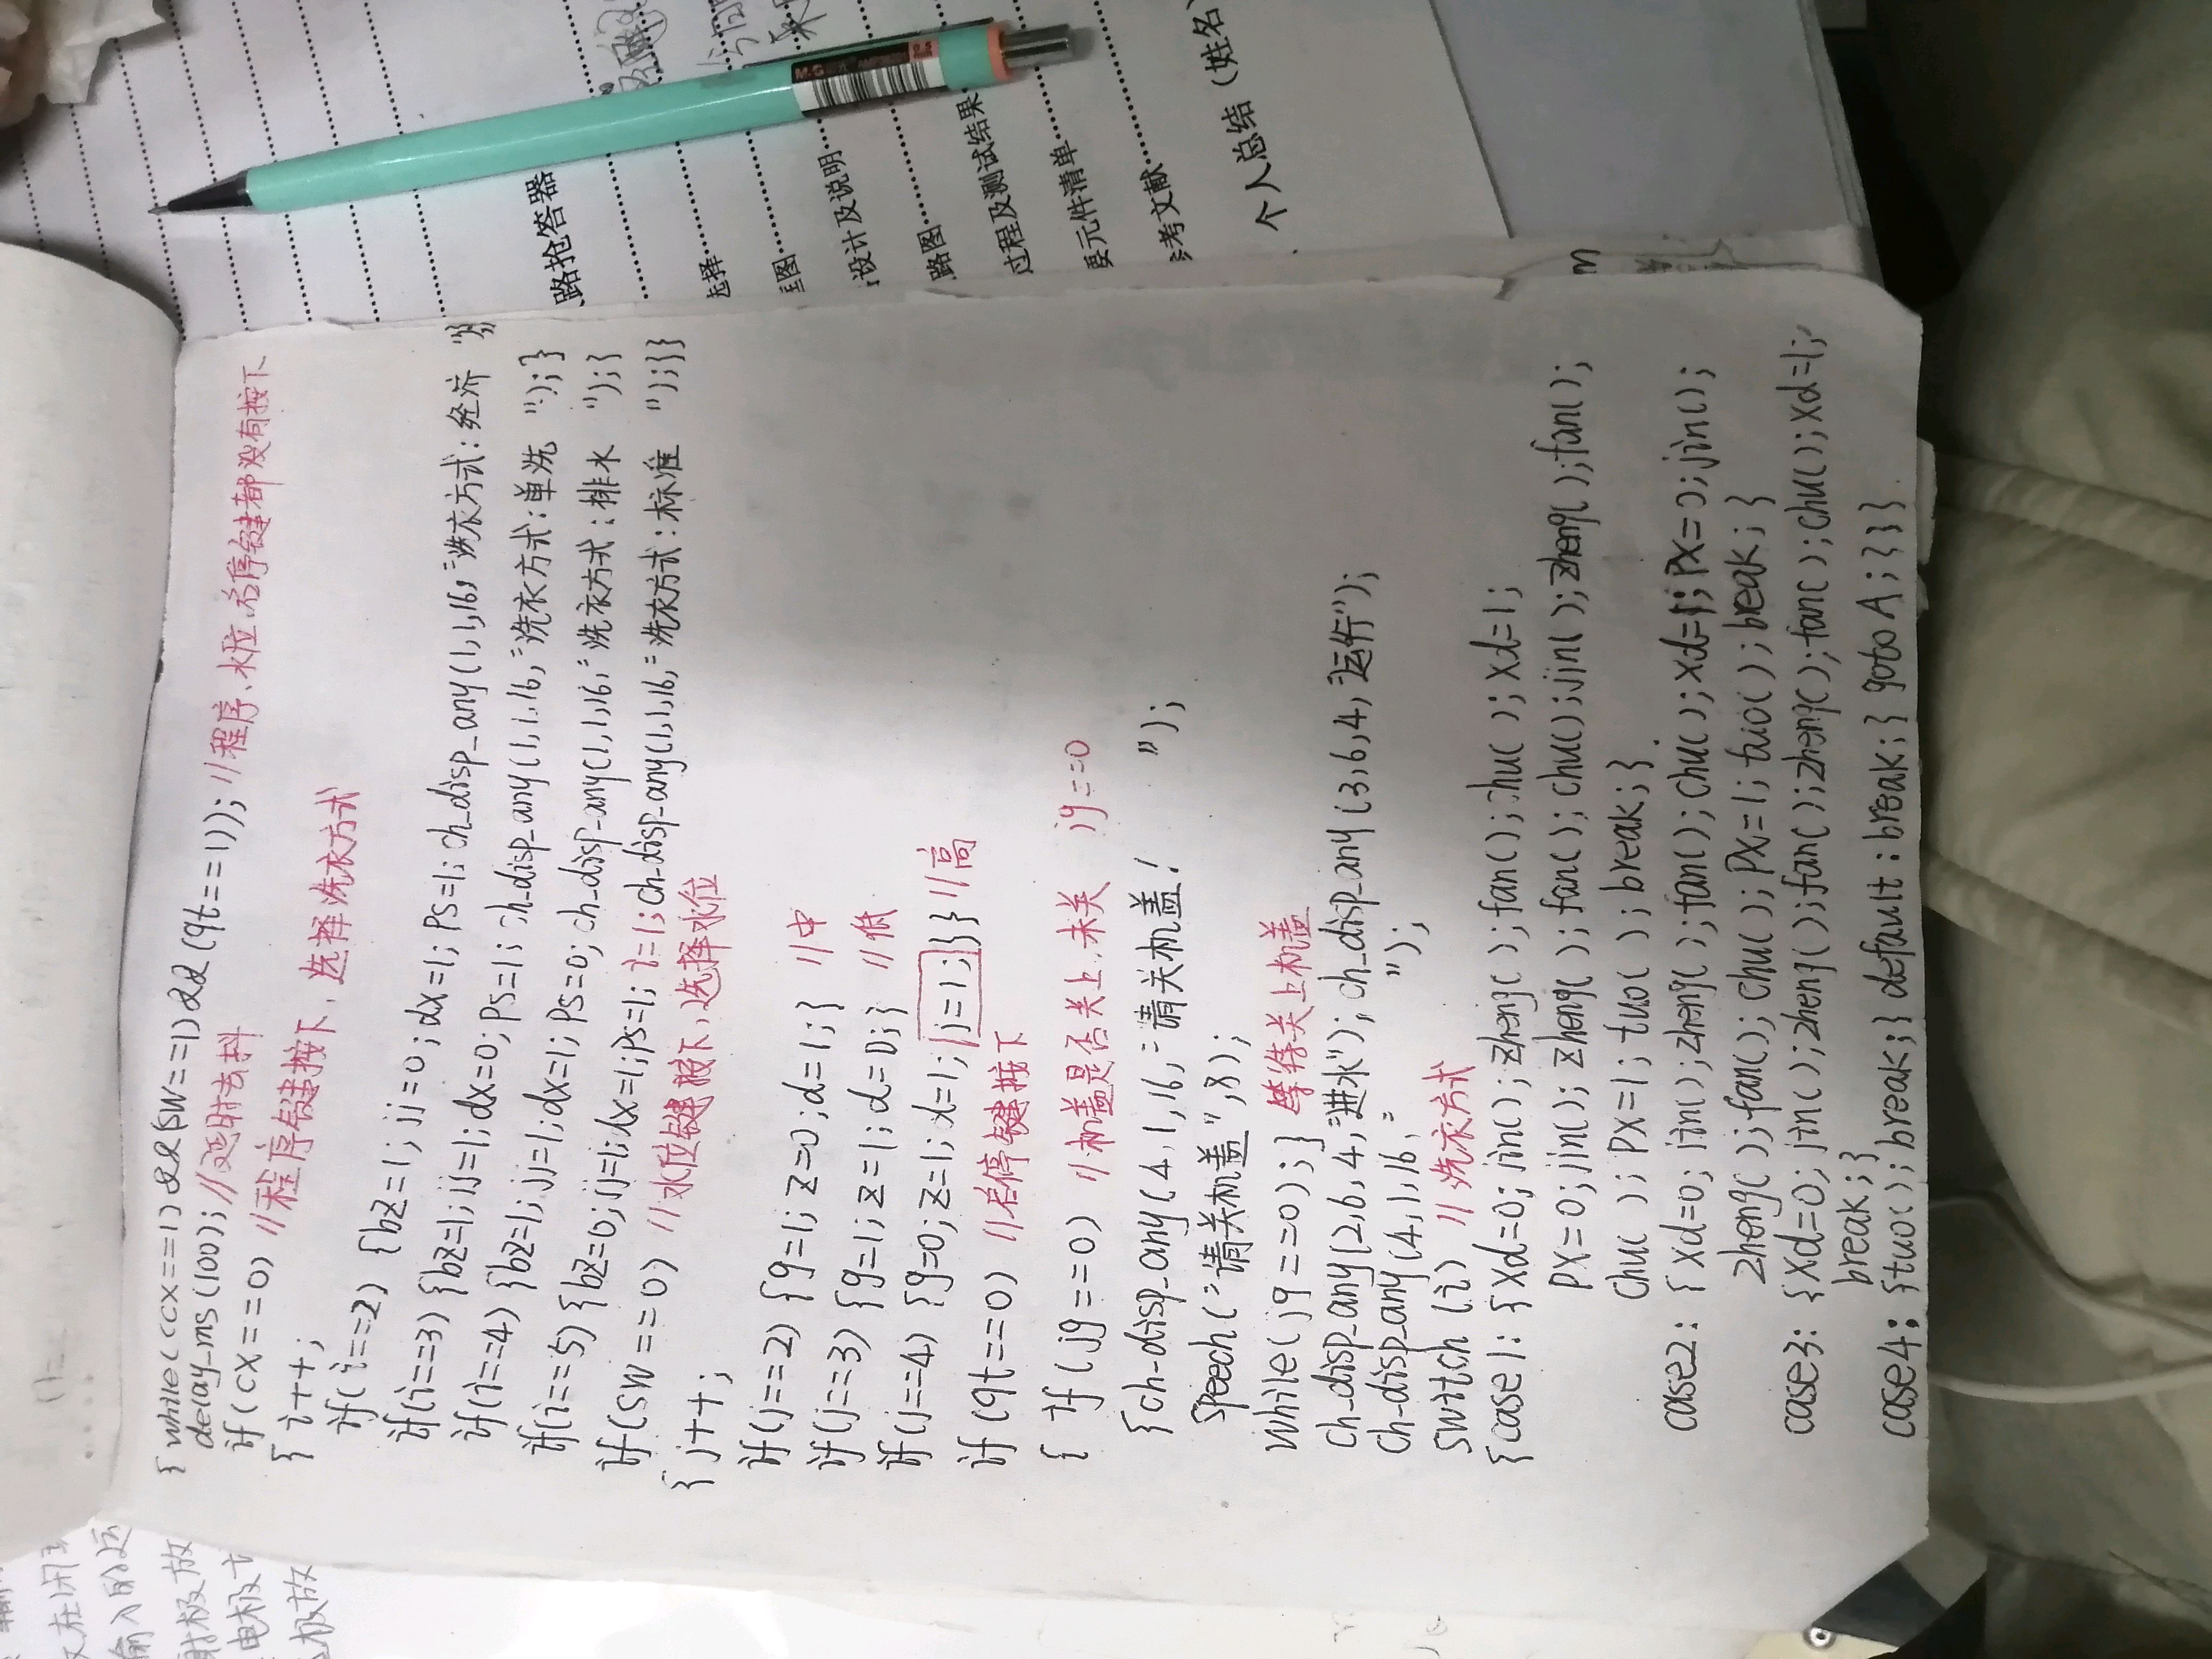 { while((cx==1)&&(sw==1)&&(qt==1)); //程序、水位、启停键都没有按下
delay_ms(100); //延时去抖
if(cx==0) //程序键按下，选择洗衣方式
{ i++;
if(i==2) {bz=1; jj=0; dx=1; ps=1; ch_disp_any(1,1,16,"洗衣方式:经济 ");}
if(i==3) {bz=1; jj=1; dx=0; ps=1; ch_disp_any(1,1,16,"洗衣方式:单洗 ");}
if(i==4) {bz=1; jj=1; dx=1; ps=0; ch_disp_any(1,1,16,"洗衣方式:排水 ");}
if(i==5) {bz=0; jj=1; dx=1; ps=1; i=1; ch_disp_any(1,1,16,"洗衣方式:标准 ");}}
if(sw==0) //水位键按下，选择水位
{ j++;
if(j==2) {g=1; z=0; d=1;} //中
if(j==3) {g=1; z=1; d=0;} //低
if(j==4) {g=0; z=1; d=1; j=1;}} //高
if(qt==0) //启停键按下
{ if(jg==0) //机盖是否关上，未关 jg==0
{ch_disp_any(4,1,16,"请关机盖! ");
speech("请关机盖",8);
while(jg==0);} 等待关上机盖
ch_disp_any(2,6,4,"进水"); ch_disp_any(3,6,4,"运行");
ch_disp_any(4,1,16," ");
switch(i) //洗衣方式
{case1: {xd=0; jin(); zheng(); fan(); chu(); xd=1;
px=0; jin(); zheng(); fan(); chu(); jin(); zheng(); fan();
chu(); px=1; tuo(); break;}
case2: {xd=0; jin(); zheng(); fan(); chu(); xd=1; px=0; jin();
zheng(); fan(); chu(); px=1; tuo(); break;}
case3: {xd=0; jin(); zheng(); fan(); zheng(); fan(); chu(); xd=1;
break;}
case4: {tuo(); break;} default: break;} goto A;}}}
路抢答器
选择
图
设计及说明
路图
过程及测试结果
要元件清单
参考文献
个人总结（姓名
M&G
0.5